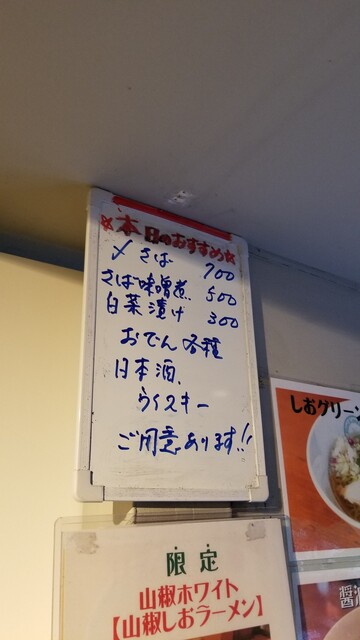 ☆本日のおすすめ☆
〆さば 700
さば味噌煮 500
白菜漬け 300
おでん各種
日本酒、
ウイスキー
ご用意あります!!
しおグリーン
限定
山椒ホワイト
【山椒しおラーメン】
醤